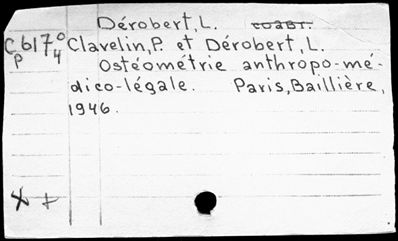 Dérobert, L. соавт.
C617⁰ Clavelin, P. et Dérobert, L.
p 4 Ostéométrie anthropo-mé-
dico-légale. Paris, Baillière,
1946.